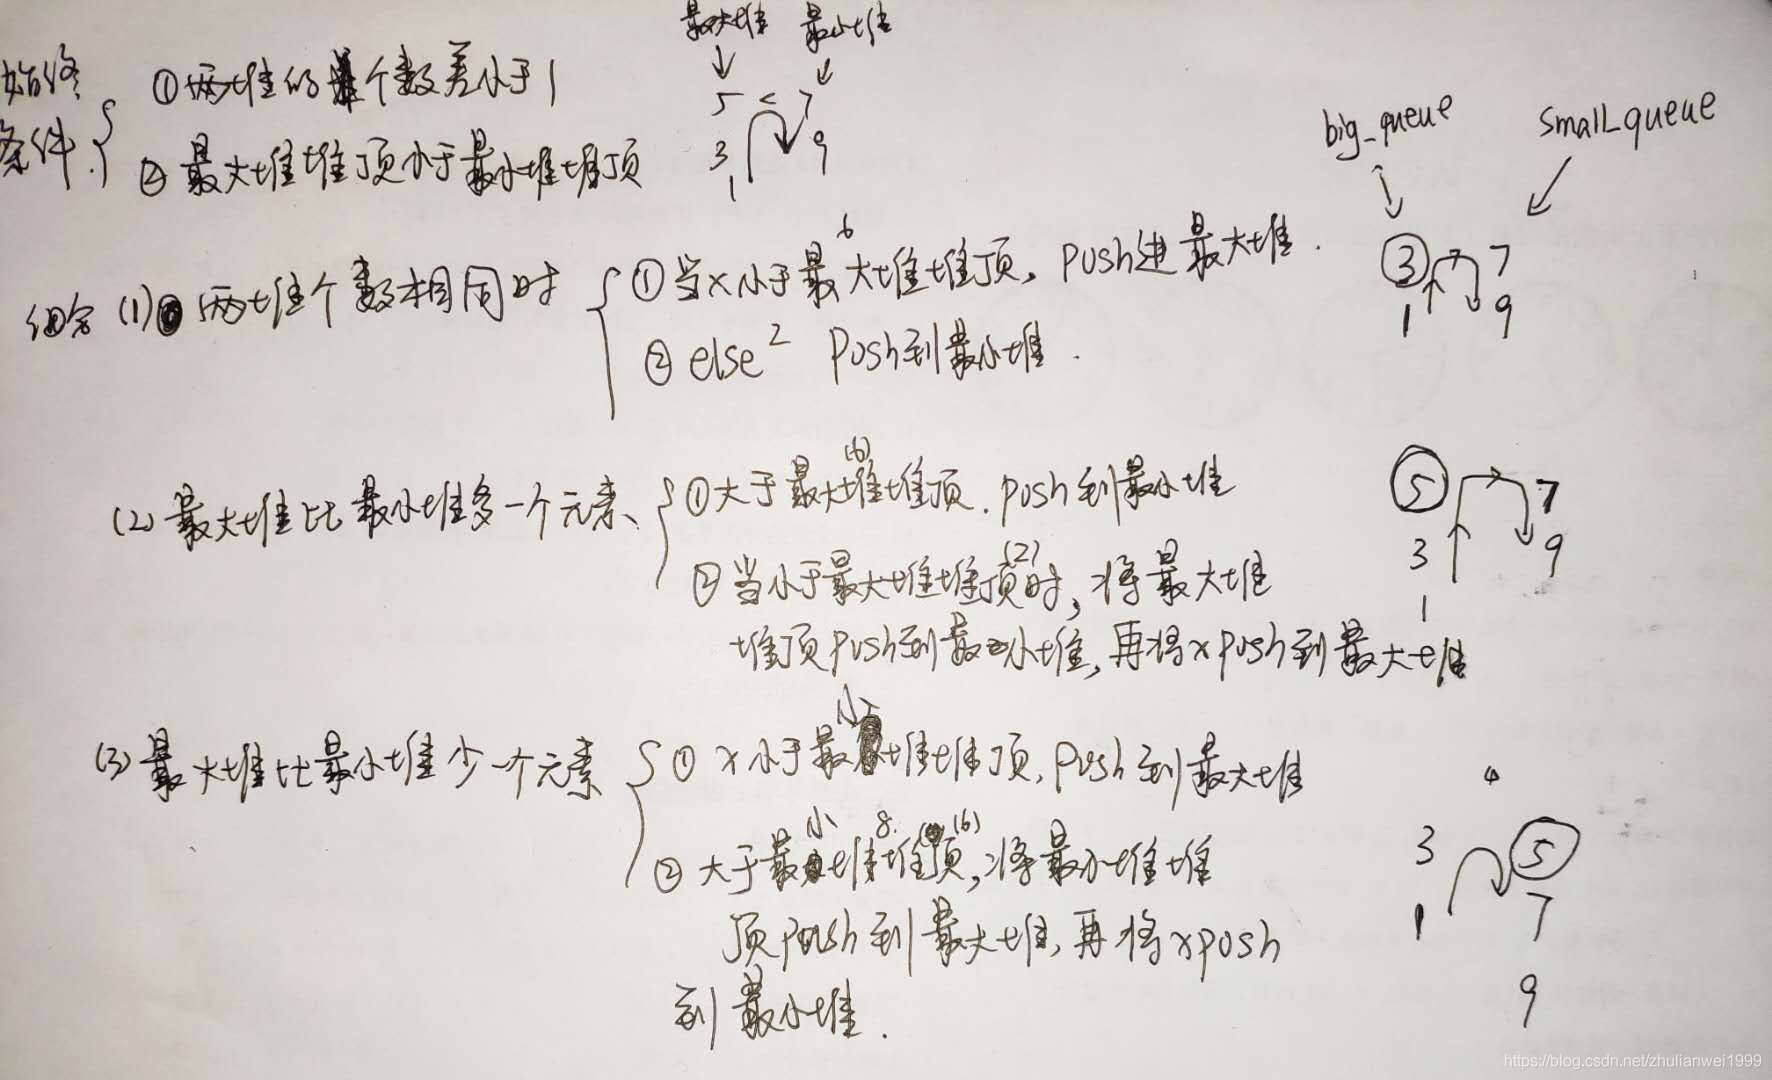 最大堆 最小堆
始终
条件
① 两堆的个数差小于1
5 < 7
② 最大堆堆顶小于最小堆堆顶
3 9
1
big_queue small_queue
(1) 两堆个数相同时
① 当x小于最大堆堆顶, push进最大堆.
6
② else push到最小堆.
2
3 7
1 9
(2) 最大堆比最小堆多一个元素、
① 大于最大堆堆顶. push到最小堆
(6)
② 当小于最大堆堆顶时, 将最大堆
(2)
堆顶push到最小堆, 再将xpush到最大堆
5 7
3 9
1
(3) 最大堆比最小堆少一个元素
① x小于最小堆堆顶, push到最大堆
② 大于最小堆堆顶, 将最小堆堆
8. (6)
顶push到最大堆, 再将xpush
到最小堆.
4
3 5
1 7
9
https://blog.csdn.net/zhulianwei1999